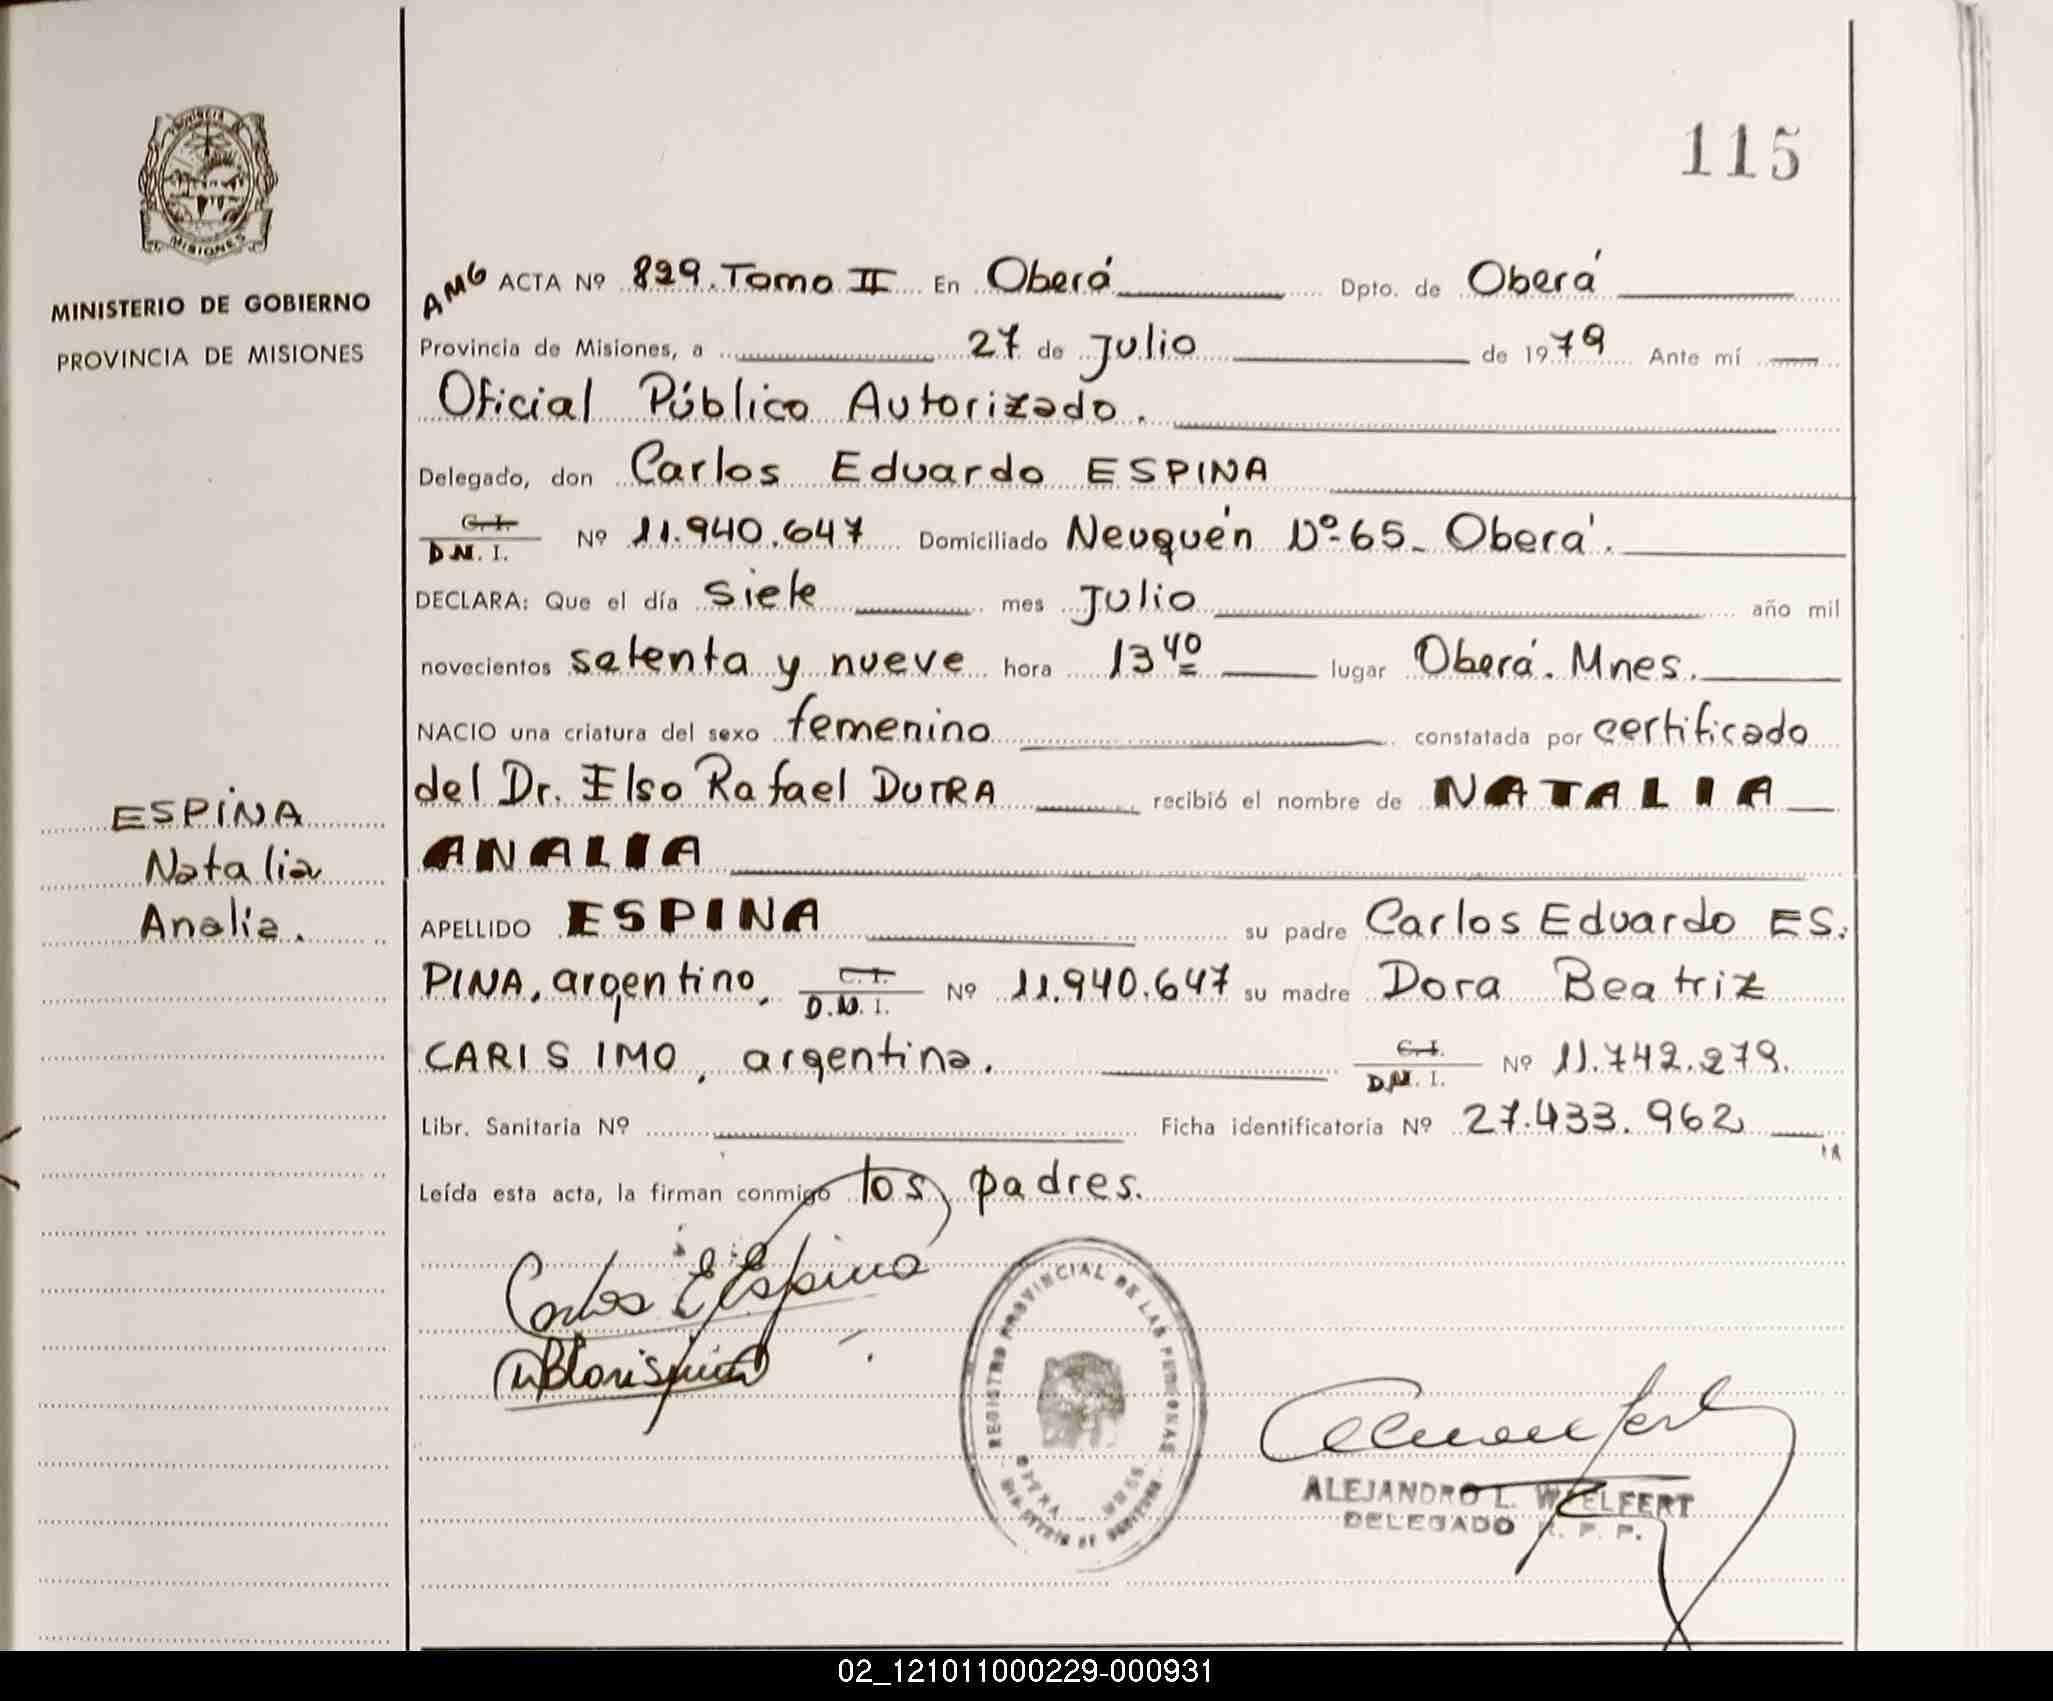 115
PROVINCIA
MISIONES
MINISTERIO DE GOBIERNO
PROVINCIA DE MISIONES
AMG ACTA Nº 829. Tomo II En Oberá Dpto. de Oberá
Provincia de Misiones, a 27 de Julio de 1979 Ante mí
Oficial Público Autorizado.
Delegado, don Carlos Eduardo ESPINA
C. I.
D.N. I. Nº 11.940.647 Domiciliado Neuquén Nº 65_ Oberá.
DECLARA: Que el día siete mes Julio año mil
novecientos setenta y nueve hora 13 40 lugar Oberá. Mnes.
NACIO una criatura del sexo femenino constatada por certificado
del Dr. Elso Rafael DUTRA recibió el nombre de NATALIA
ANALIA
ESPINA
Natalia
Analia.
APELLIDO ESPINA su padre Carlos Eduardo ES.
PINA, argentino, C. I. D.N. I. Nº 11.940.647 su madre Dora Beatriz
CARISIMO, argentina. C. I. D.N. I. Nº 11.742.279.
Libr. Sanitaria Nº Ficha identificatoria Nº 27.433.962
Leída esta acta, la firman conmigo los padres.
Carlos E Espina
REGISTRO PROVINCIAL DE LAS PERSONAS
OBERA
ALEJANDRO L. WELFERT
DELEGADO R. P. P.
02_121011000229-000931